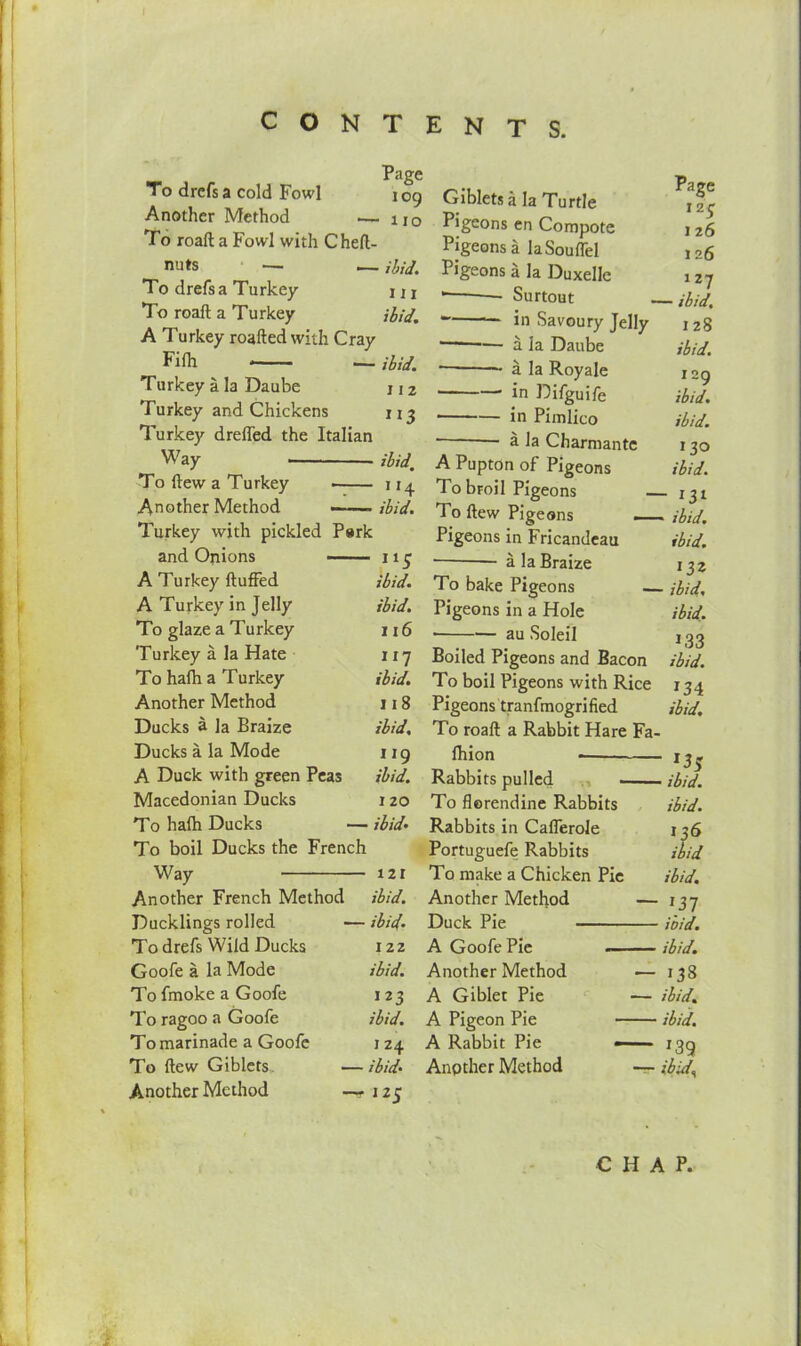 CONTENTS.
Page
To dreſs a cold Fowl 109
Another Method — 110
To roaſt a Fowl with Cheſt-
nuts — — ibid.
To dreſs a Turkey 111
To roaſt a Turkey ibid.
A Turkey roaſted with Cray
Fiſh —— — ibid.
Turkey à la Daube 112
Turkey and Chickens 113
Turkey dreſſed the Italian
Way ——— ibid.
To ſtew a Turkey —— 114
Another Method —— ibid.
Turkey with pickled Pork
and Onions —— 115
A Turkey ſtuffed ibid.
A Turkey in Jelly ibid.
To glaze a Turkey 116
Turkey à la Hate 117
To haſh a Turkey ibid.
Another Method 118
Ducks à la Braize ibid.
Ducks à la Mode 119
A Duck with green Peas ibid.
Macedonian Ducks 120
To haſh Ducks — ibid.
To boil Ducks the French
Way ——— 121
Another French Method ibid.
Ducklings rolled — ibid.
To dreſs Wild Ducks 122
Gooſe à la Mode ibid.
To ſmoke a Gooſe 123
To ragoo a Gooſe ibid.
To marinade a Gooſe 124
To ſtew Giblets — ibid.
Another Method — 125
Page
Giblets à la Turtle 125
Pigeons en Compote 126
Pigeons à la Souſſel 126
Pigeons à la Duxelle 127
——— Surtout — ibid.
——— in Savoury Jelly 128
——— à la Daube ibid.
——— à la Royale 129
——— in Diſguiſe ibid.
——— in Pimlico ibid.
——— à la Charmante 130
A Pupton of Pigeons ibid.
To broil Pigeons — 131
To ſtew Pigeons —— ibid.
Pigeons in Fricandeau ibid.
——— à la Braize 132
To bake Pigeons — ibid.
Pigeons in a Hole ibid.
——— au Soleil 133
Boiled Pigeons and Bacon ibid.
To boil Pigeons with Rice 134
Pigeons tranſmogrified ibid.
To roaſt a Rabbit Hare Fa-
ſhion ——— 135
Rabbits pulled —— ibid.
To florendine Rabbits ibid.
Rabbits in Caſſerole 136
Portugueſe Rabbits ibid
To make a Chicken Pie ibid.
Another Method — 137
Duck Pie ——— ibid.
A Gooſe Pie —— ibid.
Another Method — 138
A Giblet Pie — ibid.
A Pigeon Pie —— ibid.
A Rabbit Pie —— 139
Another Method — ibid.
CHAP.